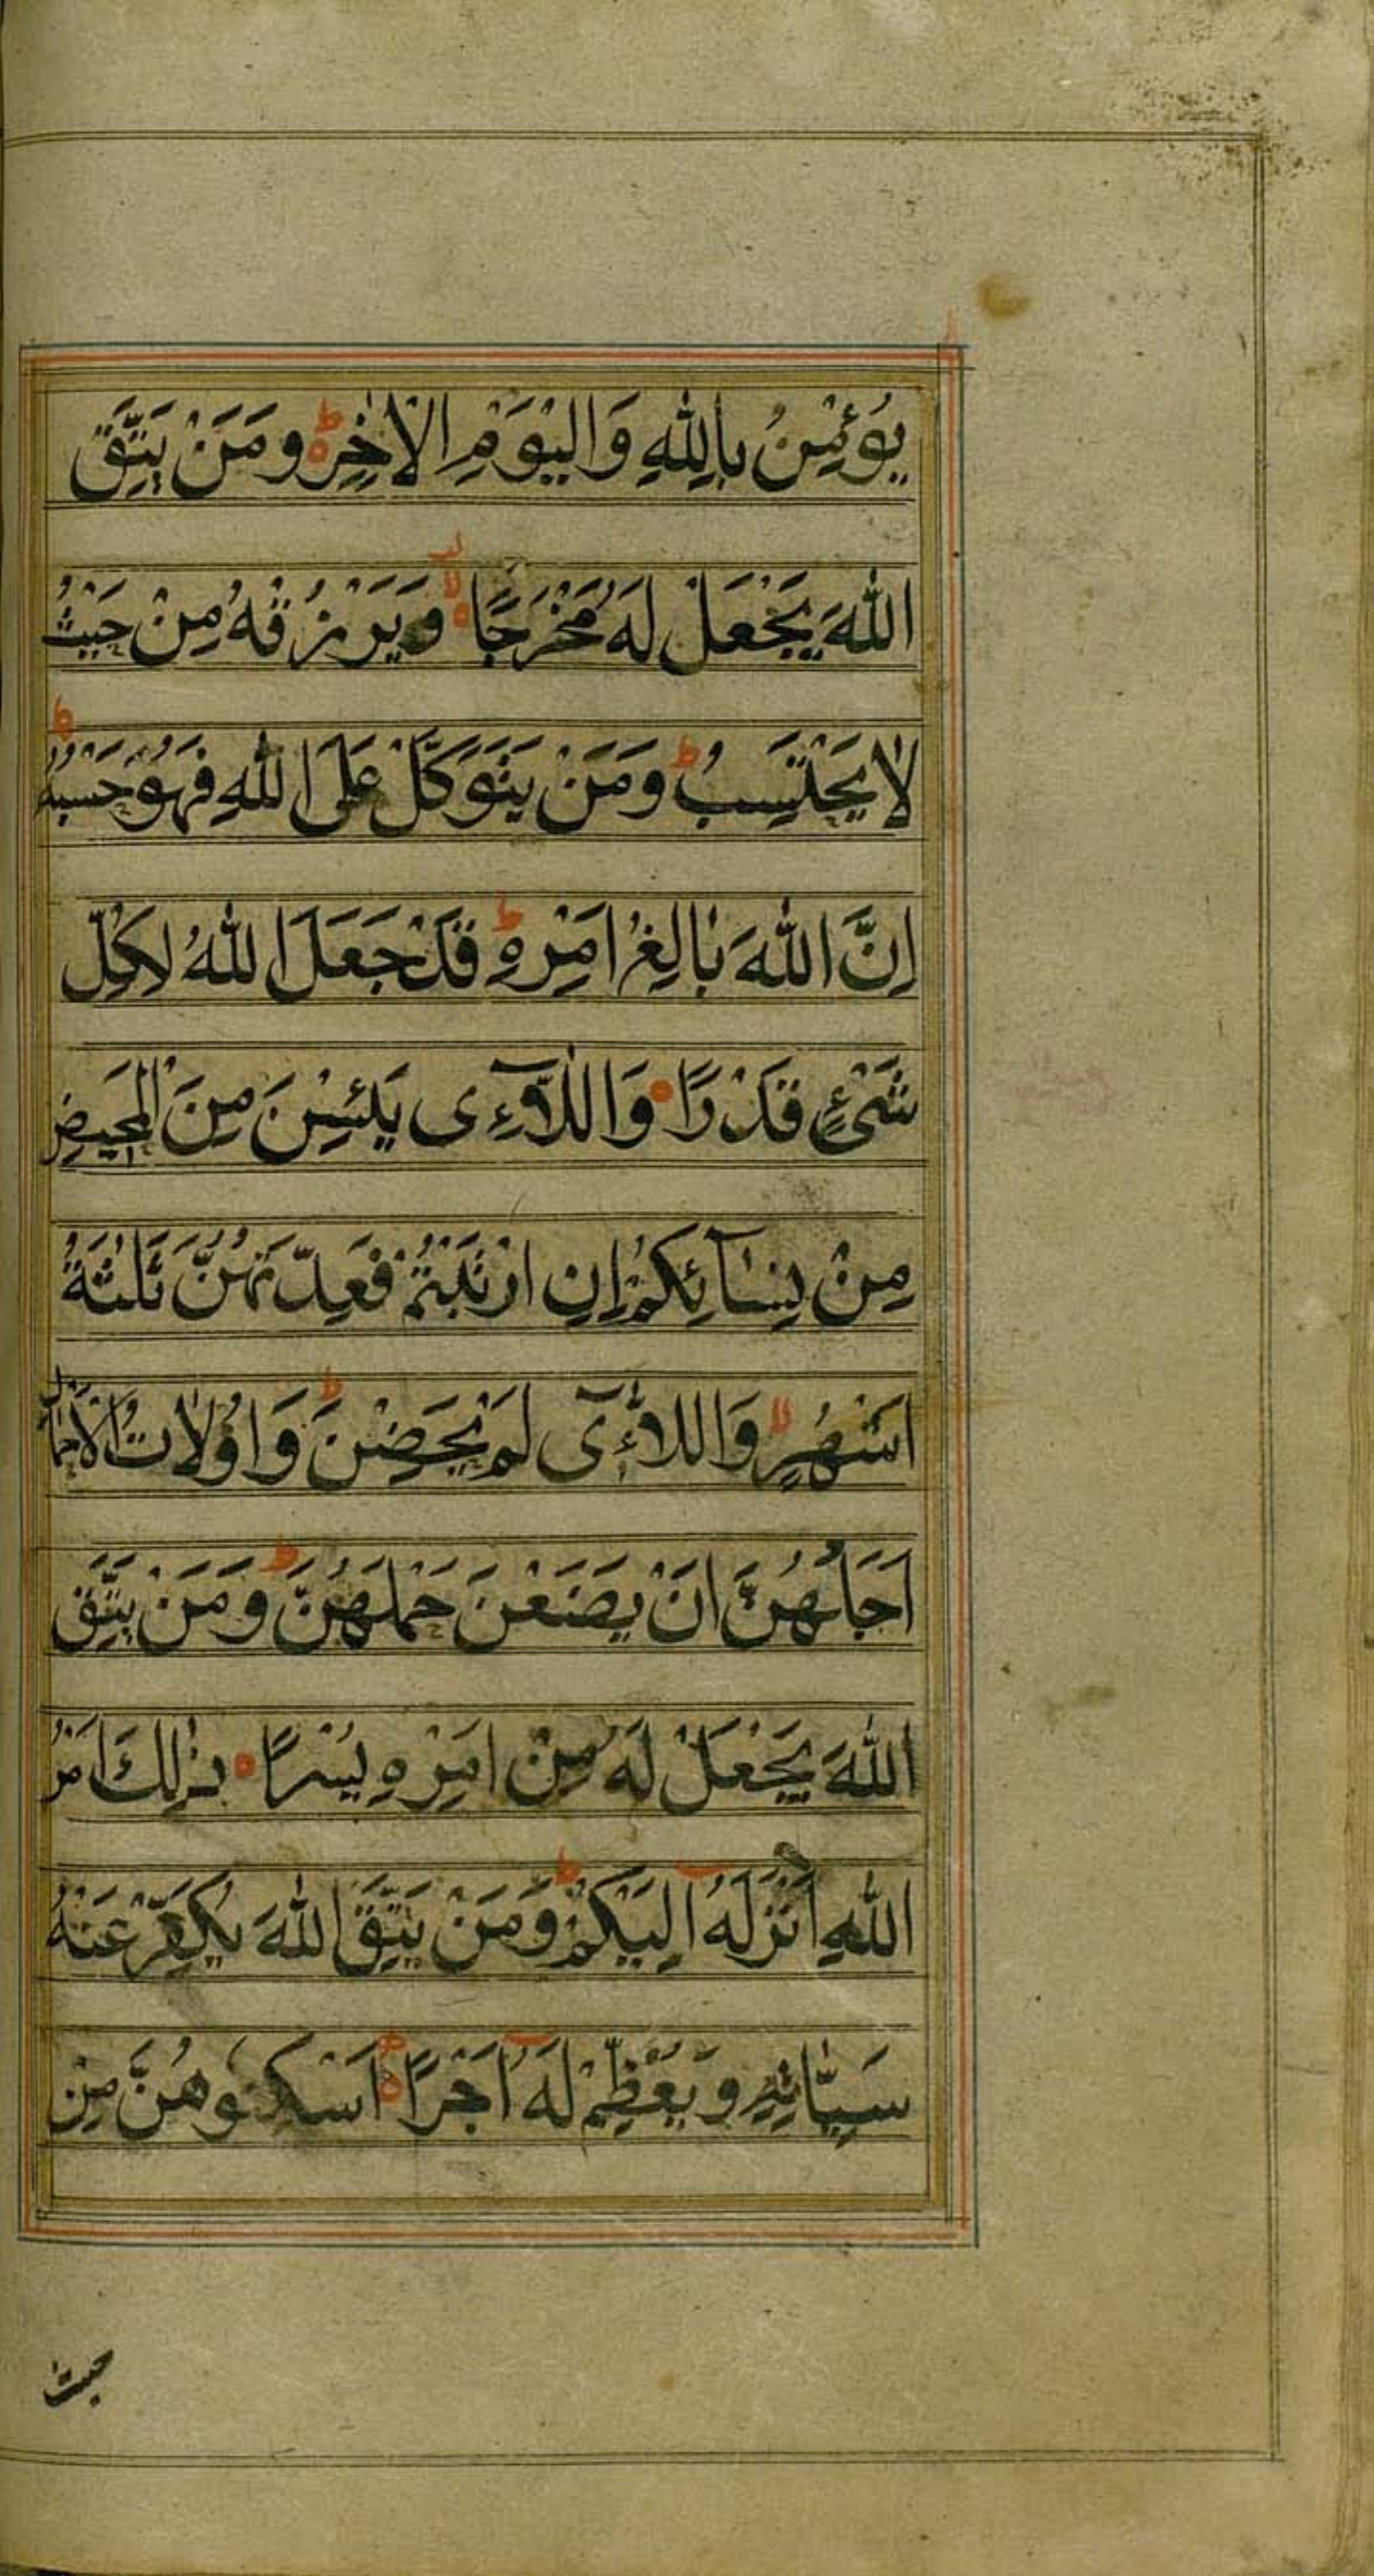 يُؤْمِنُ بِاللّٰهِ وَالْيَوْمِ الْاٰخِرِ ۵ؕ وَمَنْ يَتَّقِ
اللّٰهَ يَجْعَلْ لَهُ مَخْرَجًا ۙ وَيَرْزُقْهُ مِنْ حَيْثُ
لَا يَحْتَسِبُ ؕ وَمَنْ يَتَوَكَّلْ عَلَى اللّٰهِ فَهُوَ حَسْبُهُ ؕ
اِنَّ اللّٰهَ بَالِغُ اَمْرِهِ ؕ قَدْ جَعَلَ اللّٰهُ لِكُلِّ
شَیْءٍ قَدْرًا وَاللَّآءِی يَئِسْنَ مِنَ الْمَحِيضِ
مِنْ نِسَآئِكُمْ اِنِ ارْتَبْتُمْ فَعِدَّتُهُنَّ ثَلٰثَةُ
اَشْهُرٍ ۙ وَاللَّآءِی لَمْ يَحِضْنَ ؕ وَاُولَاتُ الْاَحْمَالِ
اَجَلُهُنَّ اَنْ يَضَعْنَ حَمْلَهُنَّ ؕ وَمَنْ يَتَّقِ
اللّٰهَ يَجْعَلْ لَهُ مِنْ اَمْرِهِ يُسْرًا ذٰلِكَ اَمْرُ
اللّٰهِ اَنْزَلَهُ اِلَيْكُمْ ؕ وَمَنْ يَتَّقِ اللّٰهَ يُكَفِّرْ عَنْهُ
سَيِّاٰتِهِ وَيُعْظِمْ لَهُ اَجْرًا اَسْكِنُوهُنَّ مِنْ
حيث